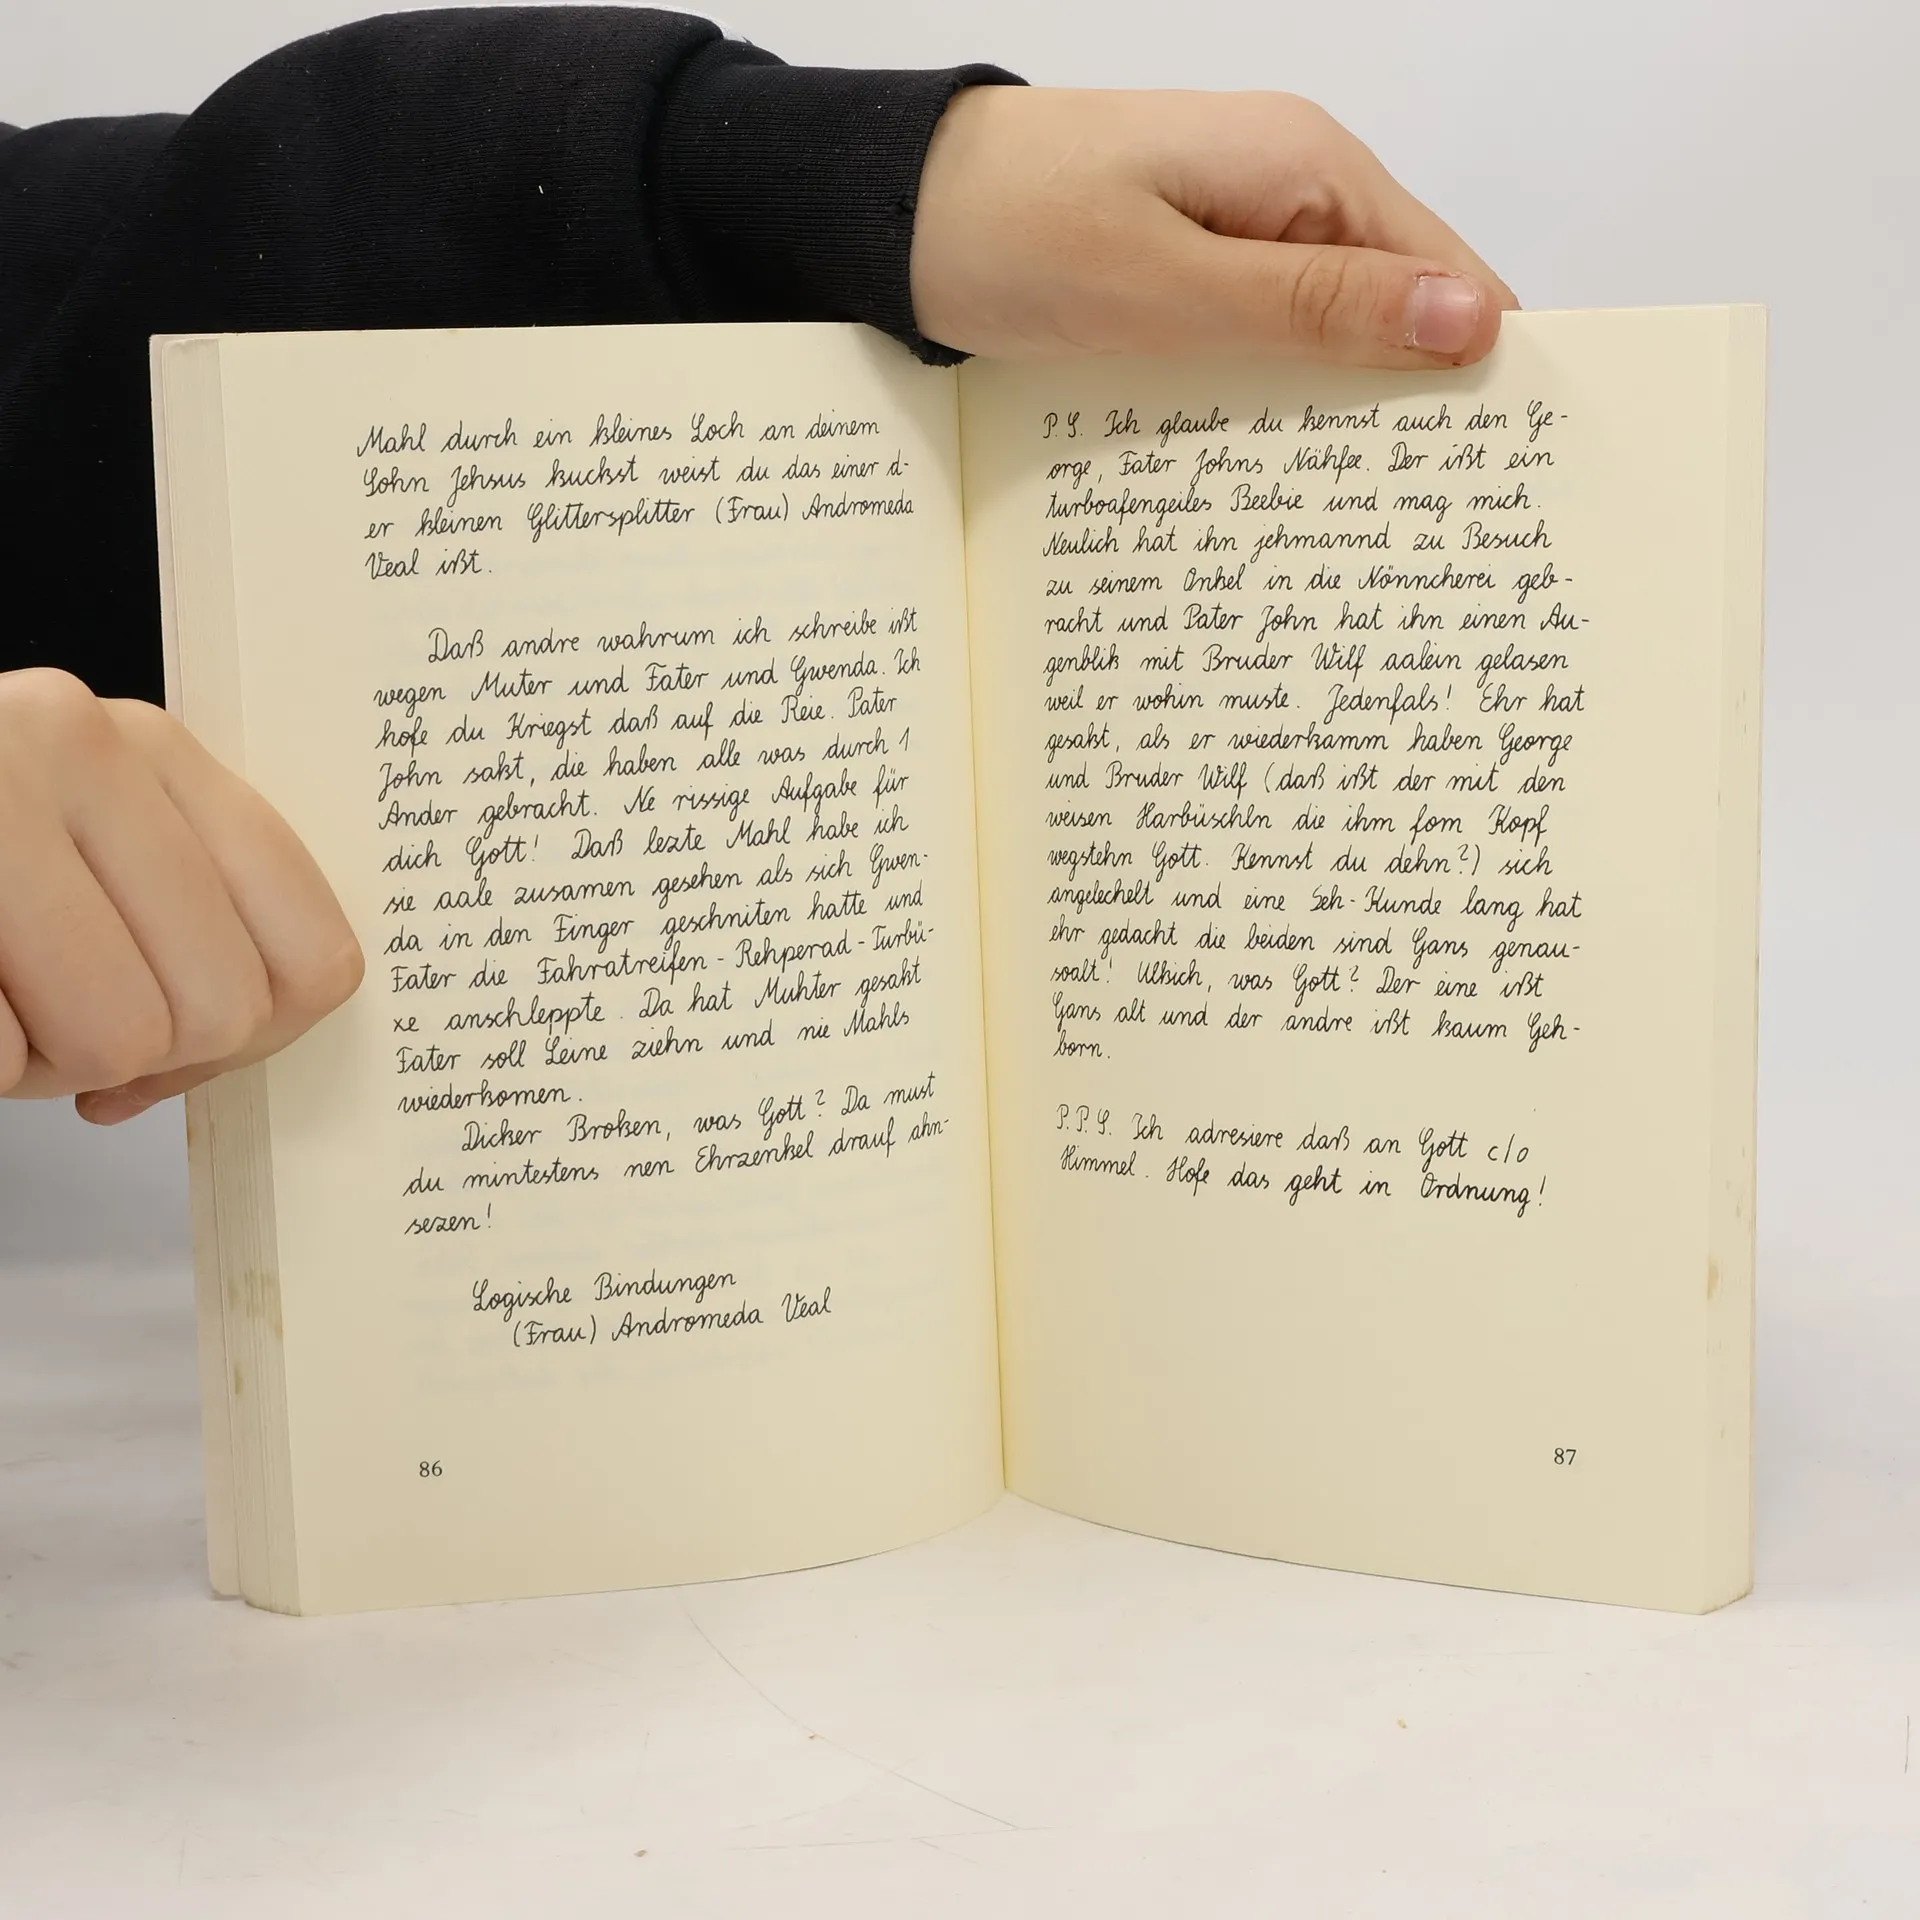 Mahl durch ein kleines Loch an deinem
Sohn Jehsus kuckst weist du das einer d-
er kleinen Glittersplitter (Frau) Andromeda
Veal ißt.
Daß andre wahrum ich schreibe ißt
wegen Muter und Fater und Gwenda. Ich
hofe du Kriegst daß auf die Reie. Pater
John sakt, die haben alle was durch 1
Ander gebracht. Ne rissige Aufgabe für
dich Gott! Daß lezte Mahl habe ich
sie aale zusamen gesehen als sich Gwen-
da in den Finger geschniten hatte und
Fater die Fahratreifen-Rehperad-Turbü-
xe anschleppte. Da hat Muhter gesakt
Fater soll Leine ziehn und nie Mahls
wiederkomen.
Dicker Broken, was Gott? Da must
du mintestens nen Ehrzenkel drauf ahn-
sezen!
Logische Bindungen
(Frau) Andromeda Veal
86
P.S. Ich glaube du kennst auch den Ge-
orge, Fater Johns Nähfee. Der ißt ein
turboafengeiles Beebie und mag mich.
Neulich hat ihn jehmannd zu Besuch
zu seinem Onkel in die Nönncherei geb-
racht und Pater John hat ihn einen Au-
genblik mit Bruder Wilf aalein gelasen
weil er wohin muste. Jedenfals! Ehr hat
gesakt, als er wiederkamm haben George
und Bruder Wilf (daß ißt der mit den
weisen Harbüschln die ihm fom Kopf
wegstehn Gott. Kennst du dehn?) sich
angelechelt und eine Seh-Kunde lang hat
ehr gedacht die beiden sind Gans genau-
soalt! Ulkich, was Gott? Der eine ißt
Gans alt und der andre ißt kaum Geh-
born.
P.P.S. Ich adresiere daß an Gott c/o
Himmel. Hofe das geht in Ordnung!
87